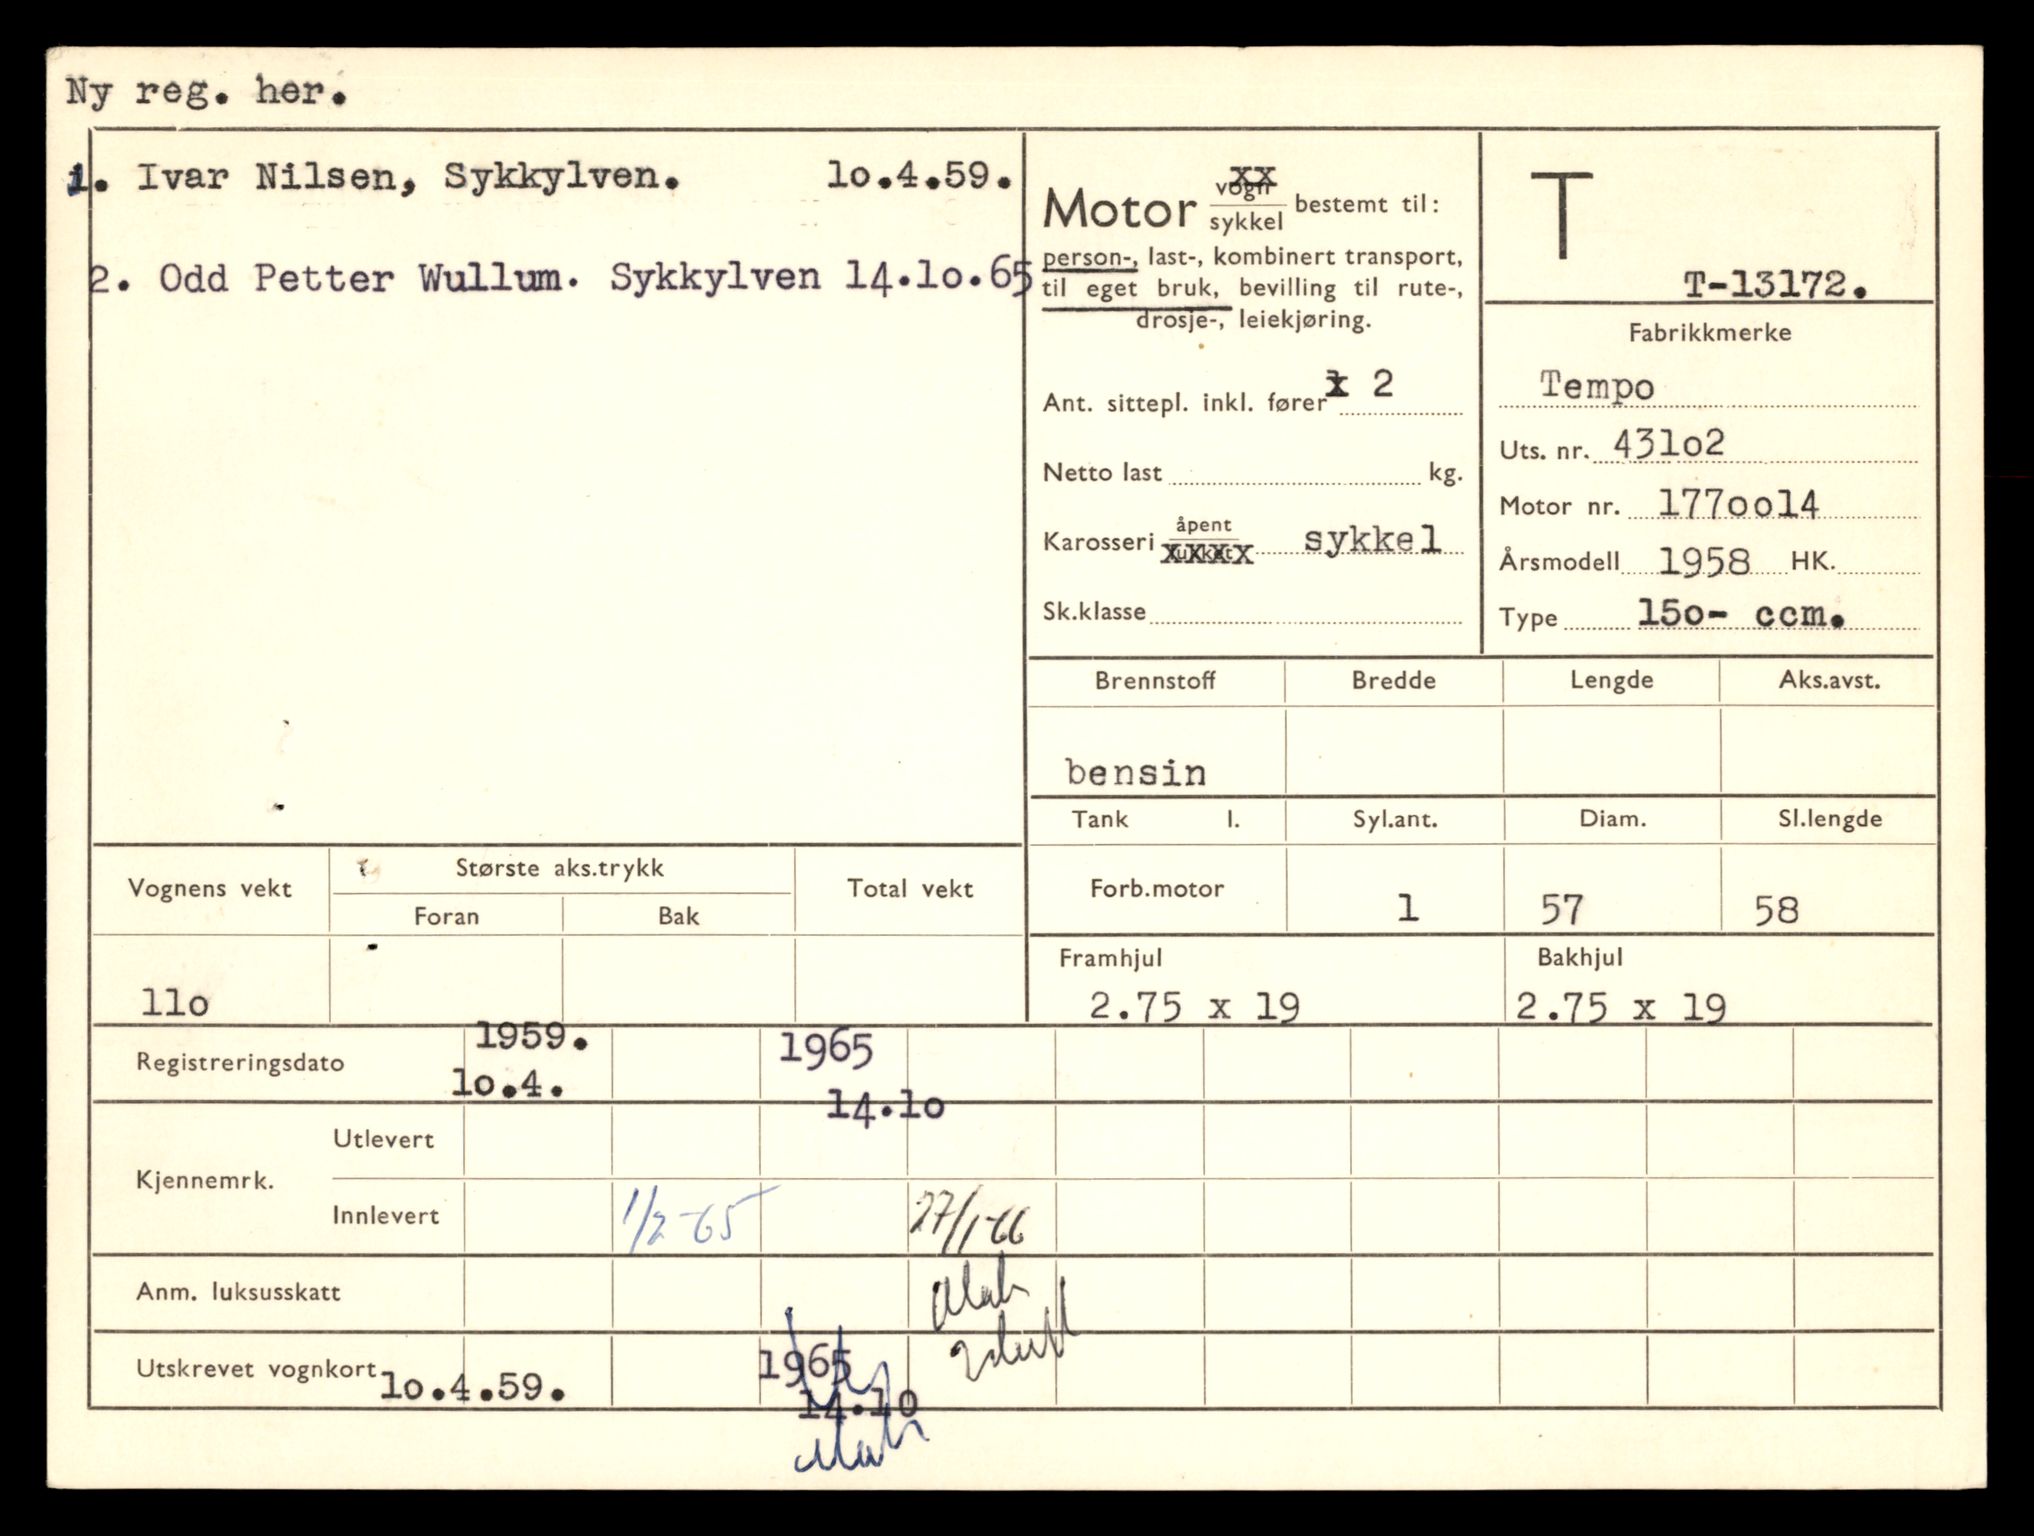 Ny reg. her.
1. Ivar Nilsen, Sykkylven. lo.4.59.
2. Odd Petter Wullum. Sykkylven 14.lo.65
Motor vogn xx
sykkel bestemt til:
person-, last-, kombinert transport,
til eget bruk, bevilling til rute-,
drosje-, leiekjøring.
Ant. sittepl. inkl. fører 2
Netto last kg.
Karosseri åpent
lukket xxxx sykkel
Sk.klasse
T
T-13172.
Fabrikkmerke
Tempo
Uts. nr. 43lo2
Motor nr. 177oo14
Årsmodell 1958 HK.
Type 15o- ccm.
Brennstoff Bredde Lengde Aks.avst.
bensin
Tank l. Syl.ant. Diam. Sl.lengde
Forb.motor 1 57 58
Framhjul Bakhjul
2.75 x 19 2.75 x 19
Vognens vekt Største aks.trykk Total vekt
Foran Bak
llo
Registreringsdato 1959. 1965
lo.4. 14.lo
Kjennemrk. Utlevert
Innlevert 1/2-65 27/1-66
Anm. luksusskatt
Utskrevet vognkort lo.4.59. 1965
14.10